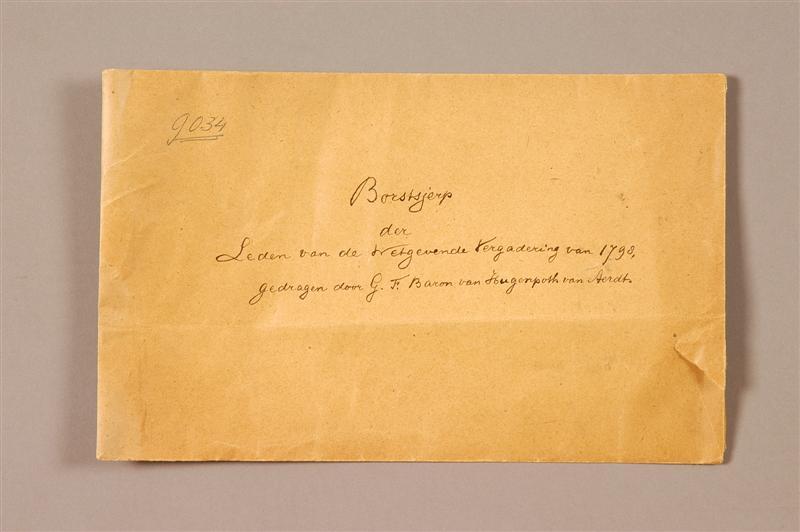 9034
Borstsjerp
der
Leden van de Wetgevende Vergadering van 1798,
gedragen door G. F. Baron van Hugenpoth van Aerdt.